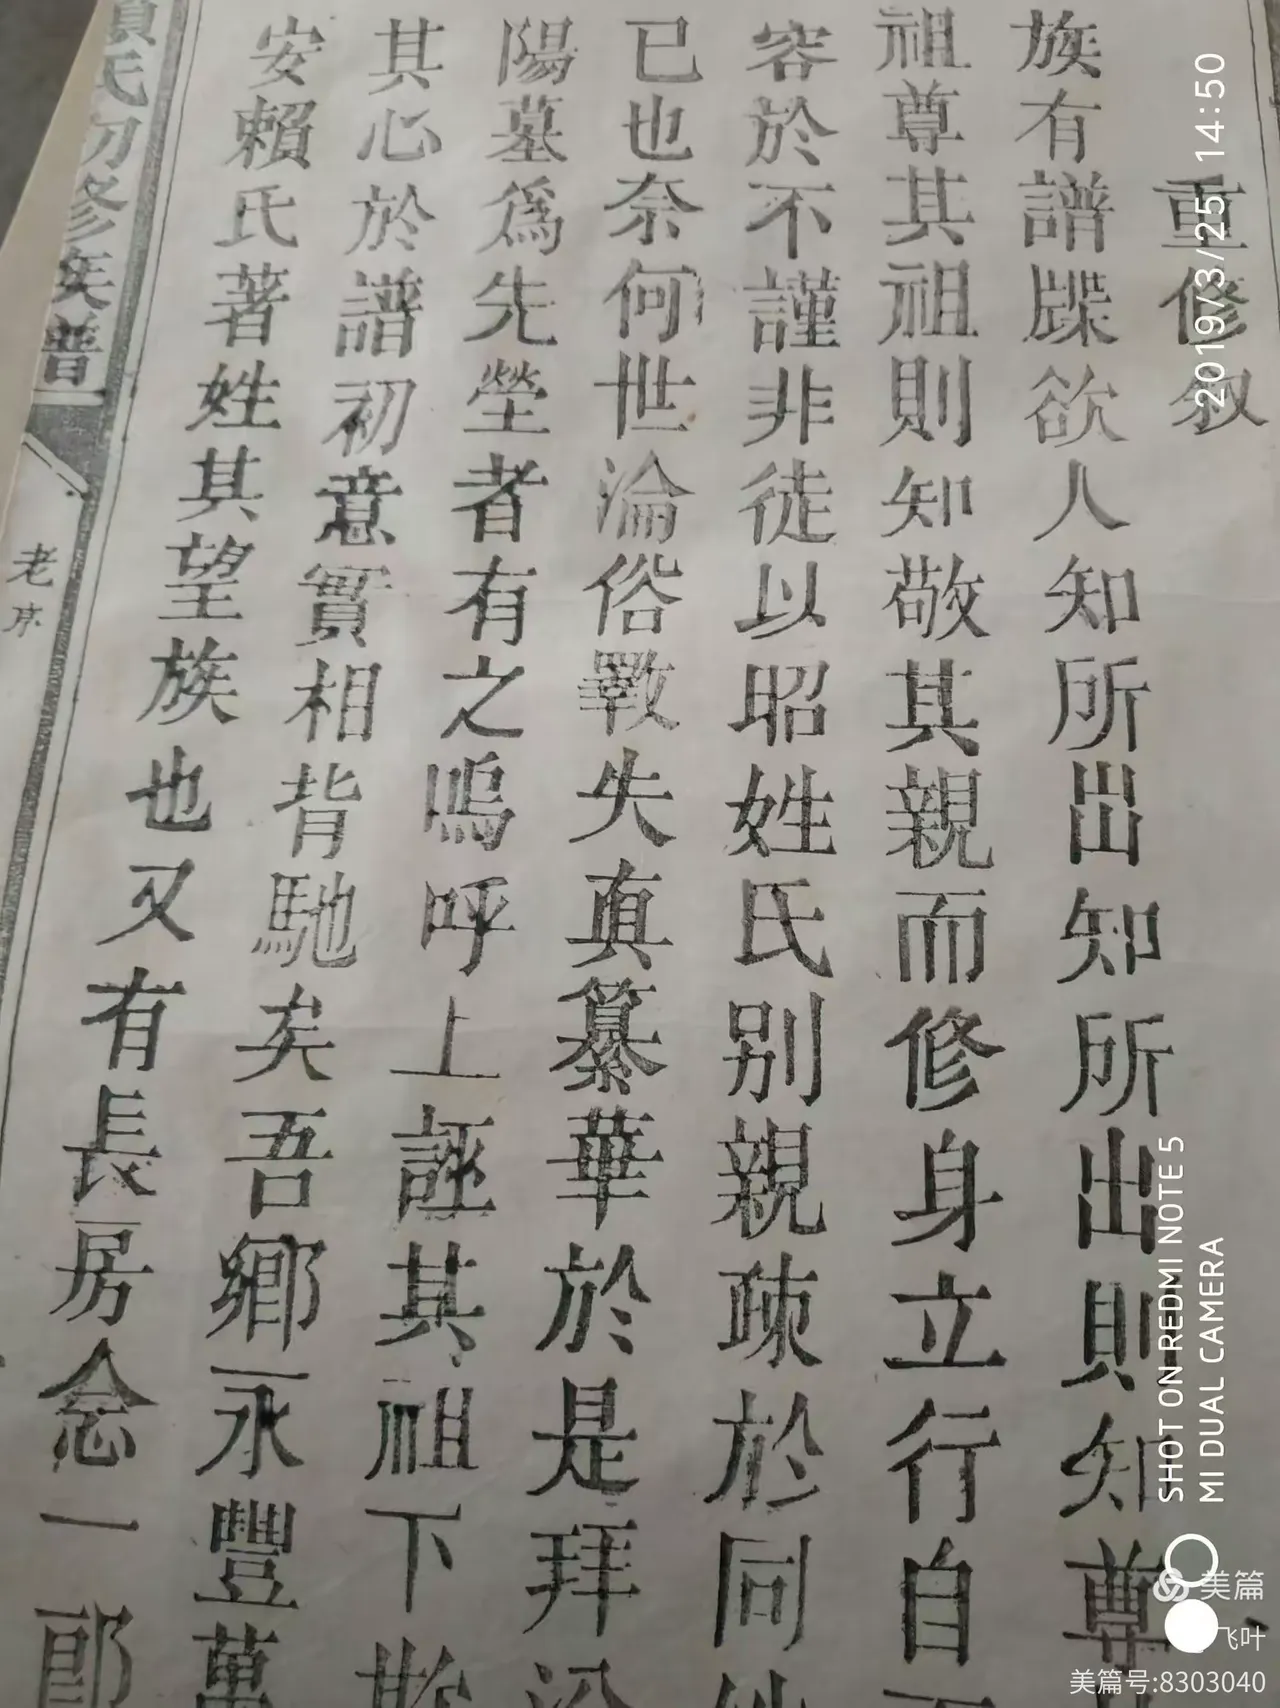 重修叙
族有譜牒欲人知所出知所出則知尊
祖尊其祖則知敬其親而修身立行自
容於不謹非徒以昭姓氏别親疎於同
已也奈何世淪俗斁失真纂華於是拜
陽墓爲先塋者有之嗚呼上誣其祖下
其心於譜初意實相背馳矣吾鄉永豐萬
安賴氏著姓其望族也又有長房念一郎
氏初修族譜
老序
2019/3/25 14:50
SHOT ON REDMI NOTE 5
MI DUAL CAMERA
美篇
飞叶
美篇号:8303040